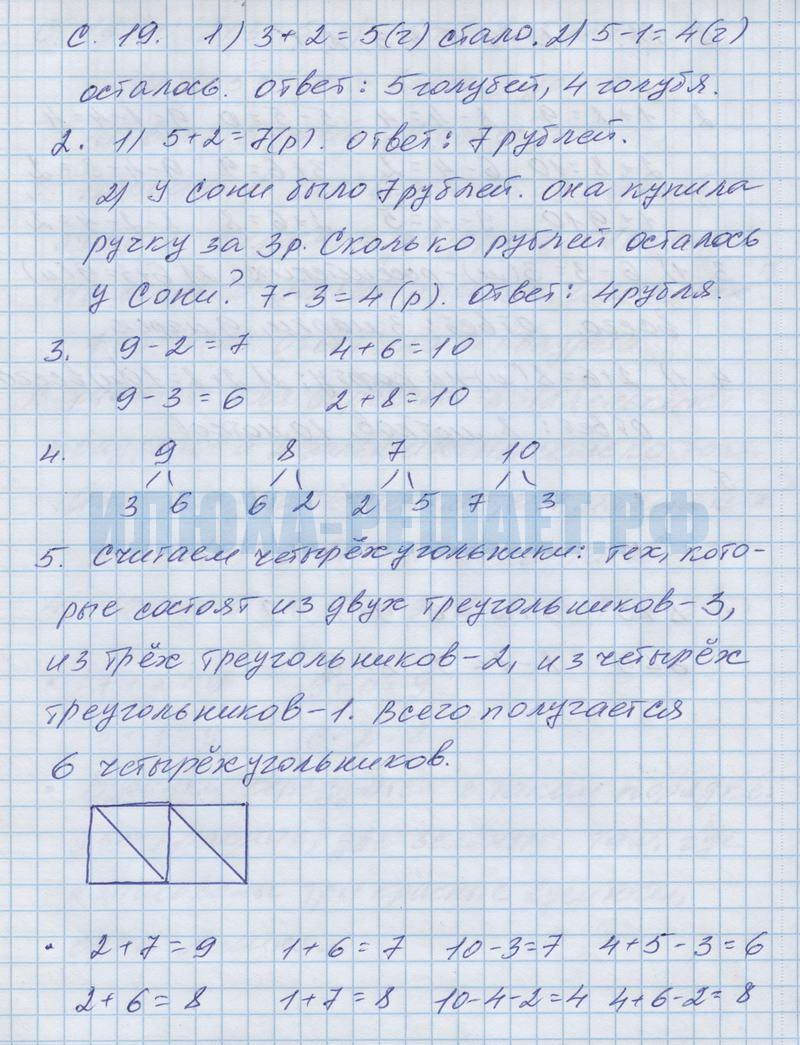 с. 19. 1) 3+2=5(г) стало. 2) 5-1=4(г)
осталось. Ответ: 5 голубей, 4 голубя.
2. 1) 5+2=7(р). Ответ: 7 рублей.
2) У Сони было 7 рублей. Она купила
ручку за 3р. Сколько рублей осталось
у Сони? 7-3=4(р). Ответ: 4 рубля.
3. 9-2=7 4+6=10
9-3=6 2+8=10
4. 9 8 7 10
3 6 6 2 2 5 7 3
ИЛЮХА-РЕШАЕТ.РФ
5. Считаем четырёхугольники: тех, кото-
рые состоят из двух треугольников-3,
из трёх треугольников-2, из четырёх
треугольников-1. Всего получается
6 четырёхугольников.
. 2+7=9 1+6=7 10-3=7 4+5-3=6
2+6=8 1+7=8 10-4-2=4 4+6-2=8